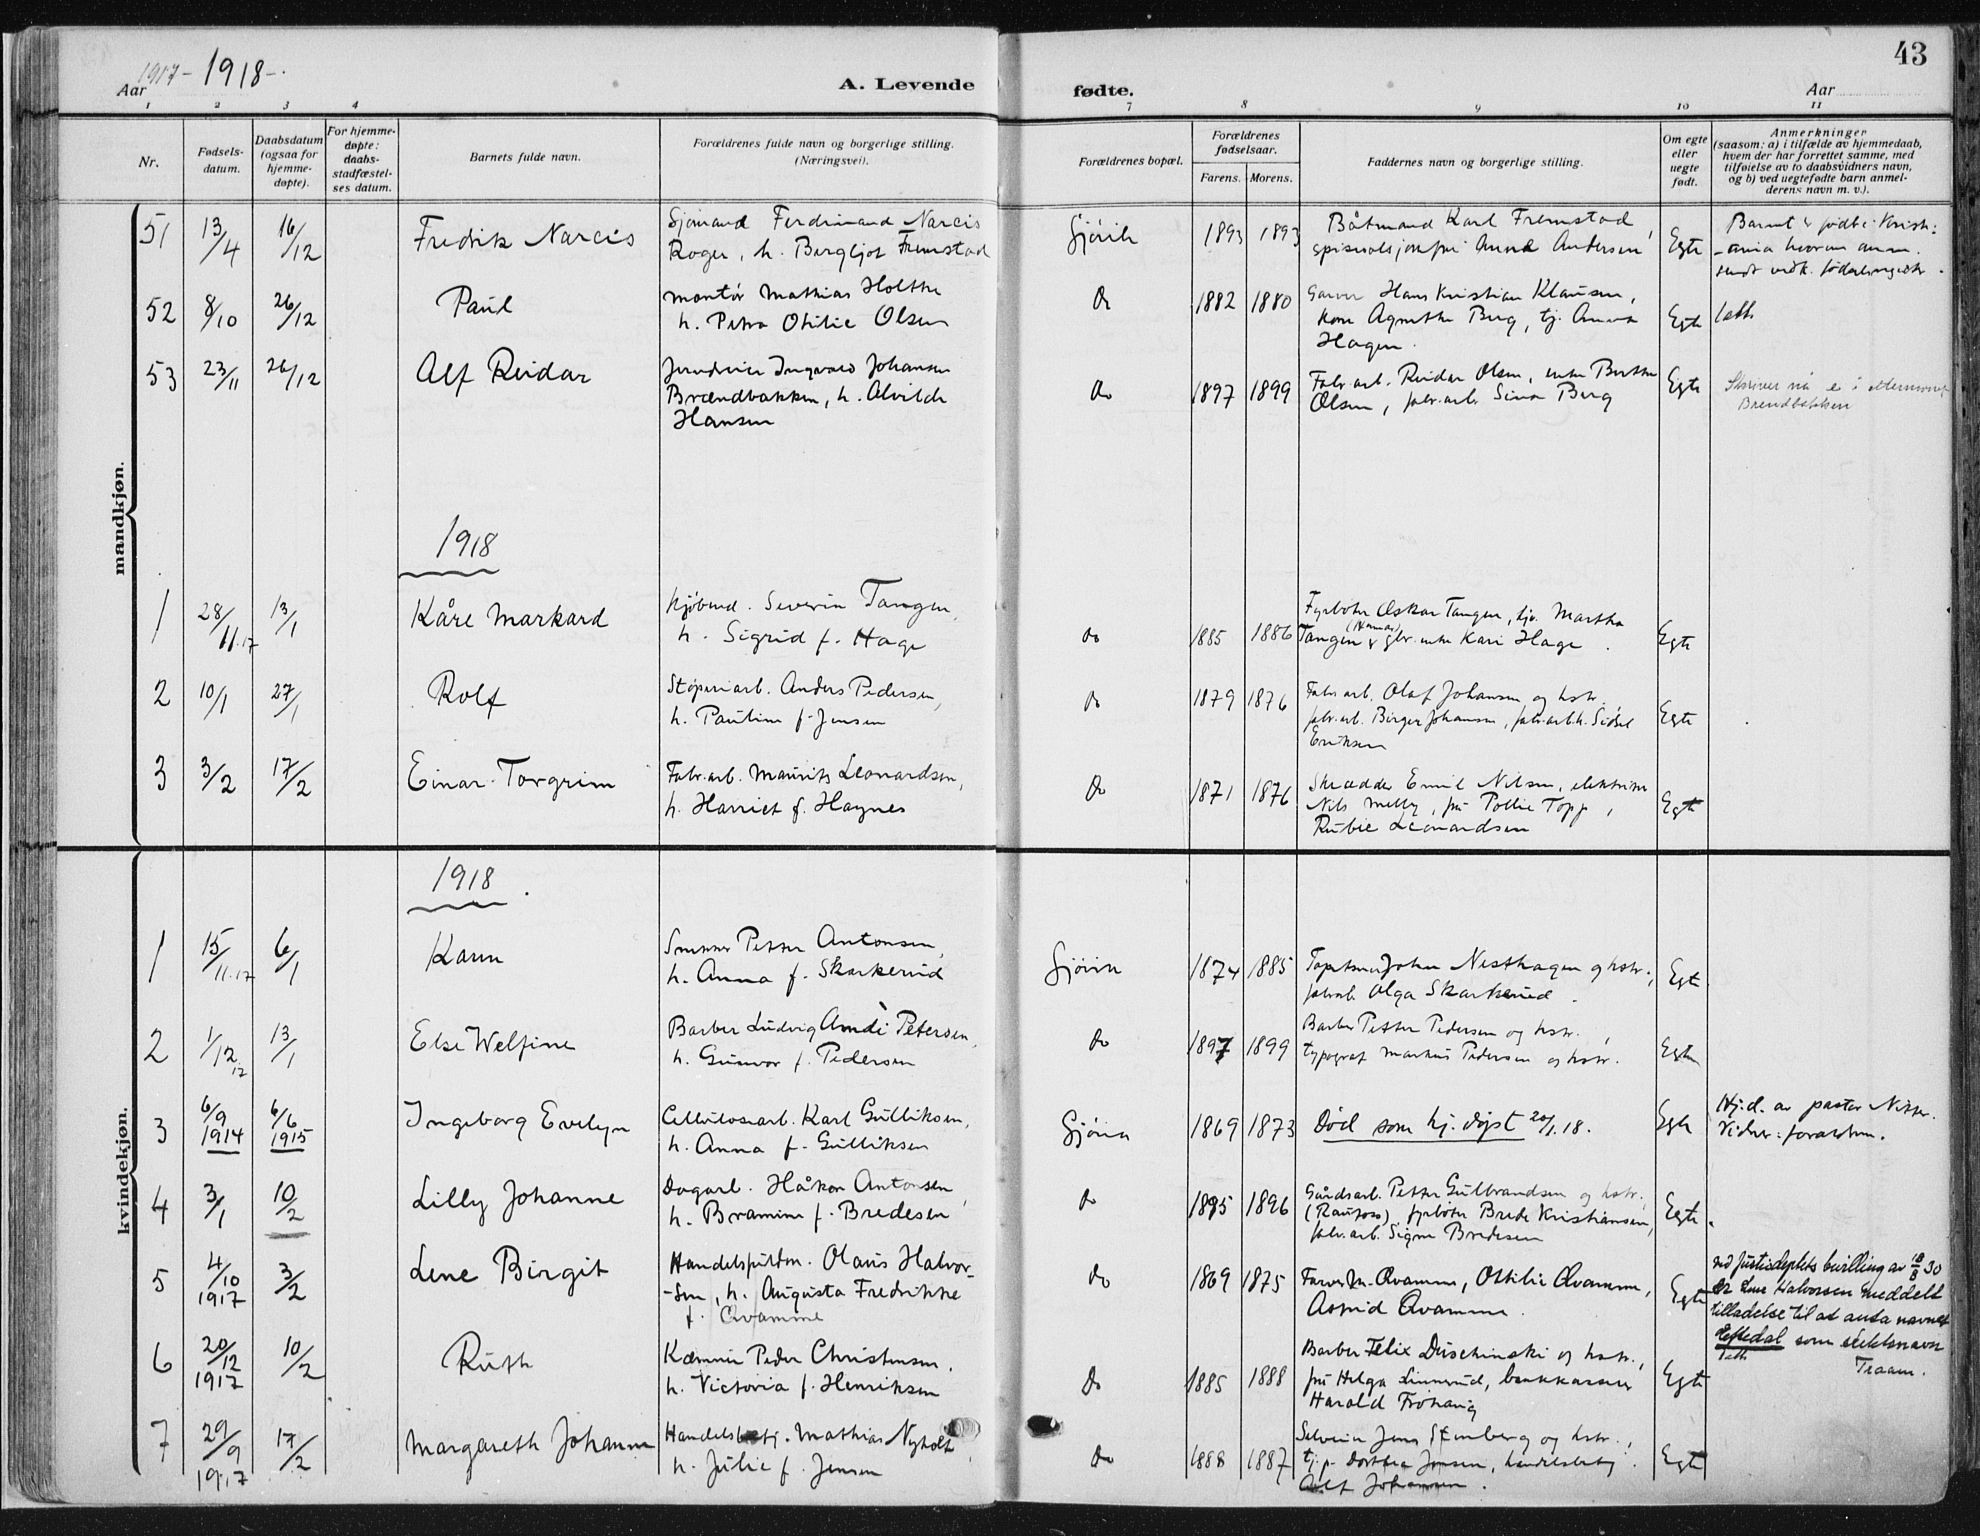 1917 - 1918 -
Aar
A. Levende fødte.
43
Aar
1 2 3 4 7 8 9 10 11
Nr.
Fødsels-
datum.
Daabsdatum
(ogsaa for
hjemme-
døpte).
For hjemme-
døpte:
daabs-
stadfæstel-
ses datum.
Barnets fulde navn.
Forældrenes fulde navn og borgerlige stilling.
(Næringsvei).
Forældrenes bopæl.
Forældrenes
fødselsaar.
Farens. Morens.
Faddernes navn og borgerlige stilling.
Om egte
eller
uegte
født.
Anmerkninger
(saasom: a) i tilfælde av hjemmedaab,
hvem der har forrettet samme, med
tilføielse av to daabsvidners navn,
og b) ved uegtefødte barn anmel-
derens navn m. v.).
mandkjøn.
51 13/4 16/12 Fredrik Narcis
Sjømand Ferdinand Narcis
Roger, h. Bergljot Fremstad
Gjövik 1893 1893
Båtmand Karl Fremstad,
Anna Andersen
Egte
Barnet er født i Krist-
-ania hvorom anm.
sendt
52 8/10 26/12 Paul
Montør Mathias Holthe
h. Petra Otilie Olsen
Do 1882 1880
Garver Hans Kristian Klausen,
Kone Agnethe Berg, tj. Anna
Hagen.
Egte
53 23/11 26/12 Alf Reidar
Jerndreier Ingvald Johansen
Brændbakken, h. Alvilde
Hansen
Do 1897 1899
Fabr.arb. Reidar Olsen, enke Berthe
Olsen, fabr.arb. Sina Berg
Egte
Skriver nå e i etternavnet
Brendbakken
1918
1 28/11.17 13/1 Kåre Markard
Kjøbmd. Severin Tangen,
h. Sigrid f. Hage
Do 1885 1886
Fyrbøter Oskar Tangen, tj. Martha
(Hamar)
Tangen, enke Kari Hage.
Egte
2 10/1 27/1 Rolf
Støperiarb. Anders Pedersen,
h. Pauline f. Jensen
Do 1879 1876
Fabr.arb. Olaf Johansen og hstr.,
fabr.arb. Birger Johansen, fabr.arb. Sidsel
Eriksen
Egte
3 3/2 17/2 Einar Torgrim
Fabr.arb. Maurits Leonardsen,
h. Harriet f. Haynes
Do 1871 1876
Skrædder Emil Nilsen, elektriker
Nils Melby, frk Pollie Topp,
Rubie Leonardsen
Egte
kvindekjøn.
1918.
1 15/11.17 6/1 Karin
Snekker Petter Antonsen,
h. Anna f. Skarkerud
Gjövik 1874 1885
Tapetserer John Nesthagen og hstr.,
fabrarb. Olga Skarkerud.
Egte
2 1/12.17 13/1 Else Welfine
Barber Ludvig Arndi Petersen,
h. Gunvor f. Pedersen
Do 1897 1899
Barber Petter Pedersen og hstr.,
typograf Markus Pedersen og hstr.
Egte
3 6/9 1914 6/6 1915 Ingeborg Evelyn
Cellulosearb. Karl Gulliksen,
h. Anna f. Gulliksen
Gjövik 1869 1873
Død som hj. døpt 20/1.18.
Egte
Hj.d. av pastor
Vidner: forældrene.
4 3/1 10/2 Lilly Johanne
Dagarb. Håkon Antonsen,
h. Bramine f. Bredesen
Do 1895 1896
Gårdsarb. Petter Gulbrandsen og hstr.,
(Raufoss), fyrbøter Brede Kristiansen,
fabr.arb. Signe Bredesen
Egte.
5 4/10 1917 3/2 Lene Birgit
Handelsfuldm. Olaus Halvor-
-sen, h. Augusta Fredrikke
f. Qvamme
Do 1869 1875
Farver M. Qvamme, Ottilie Qvamme,
Astrid Qvamme.
Egte
ved Justisdeptets bevilling av 18/8 30
er Lene Halvorsen meddelt
tilladelse til at anta navnet
Eftedal som slektsnavn
Traaen.
6 20/12 1917 10/2 Ruth
Kæmner Peder Christensen,
h. Victoria f. Henriksen
Do 1885 1888
Barber Felix Duschinski og hstr.,
frk Helga Linnerud, bankkasserer
Harald Frohaug
Egte
7 29/9 1917 17/2 Margareth Johanne
Handelsbetj. Mathias Nyholt,
h. Julie f. Jensen
Do 1888 1887
Selveier Jens Stenberg og hstr.,
tj.p. Dorthea Jensen, handelsbetj.
Alf Johannsen.
Egte